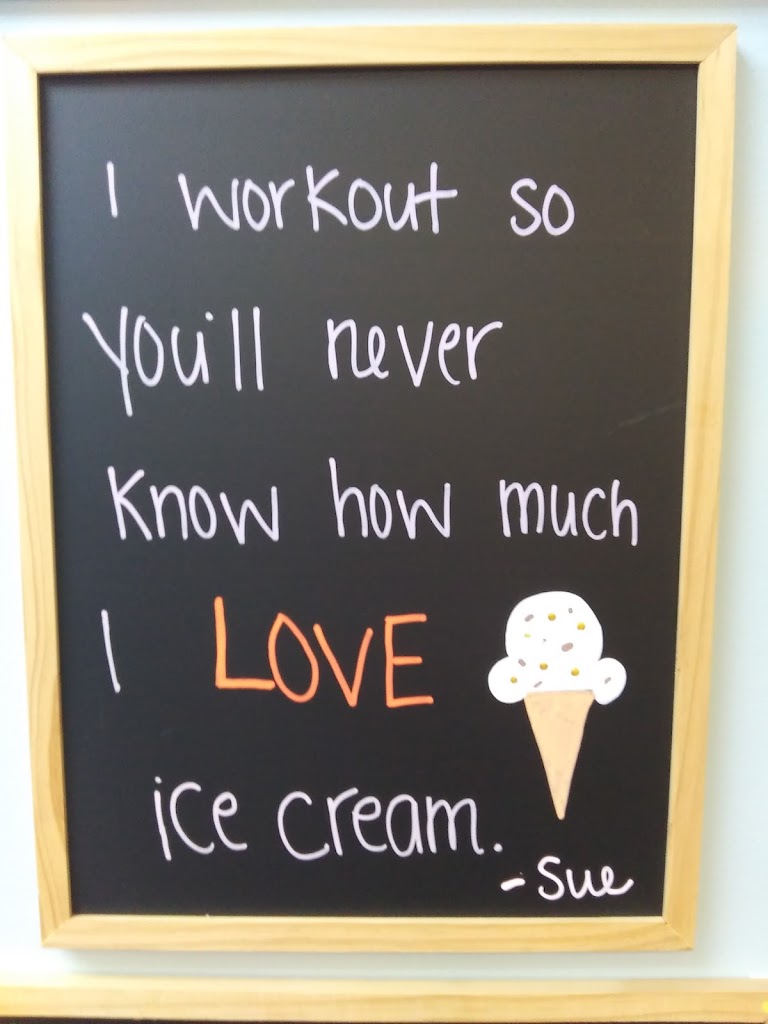 I workout so
you'll never
know how much
I LOVE
ice cream.
-Sue